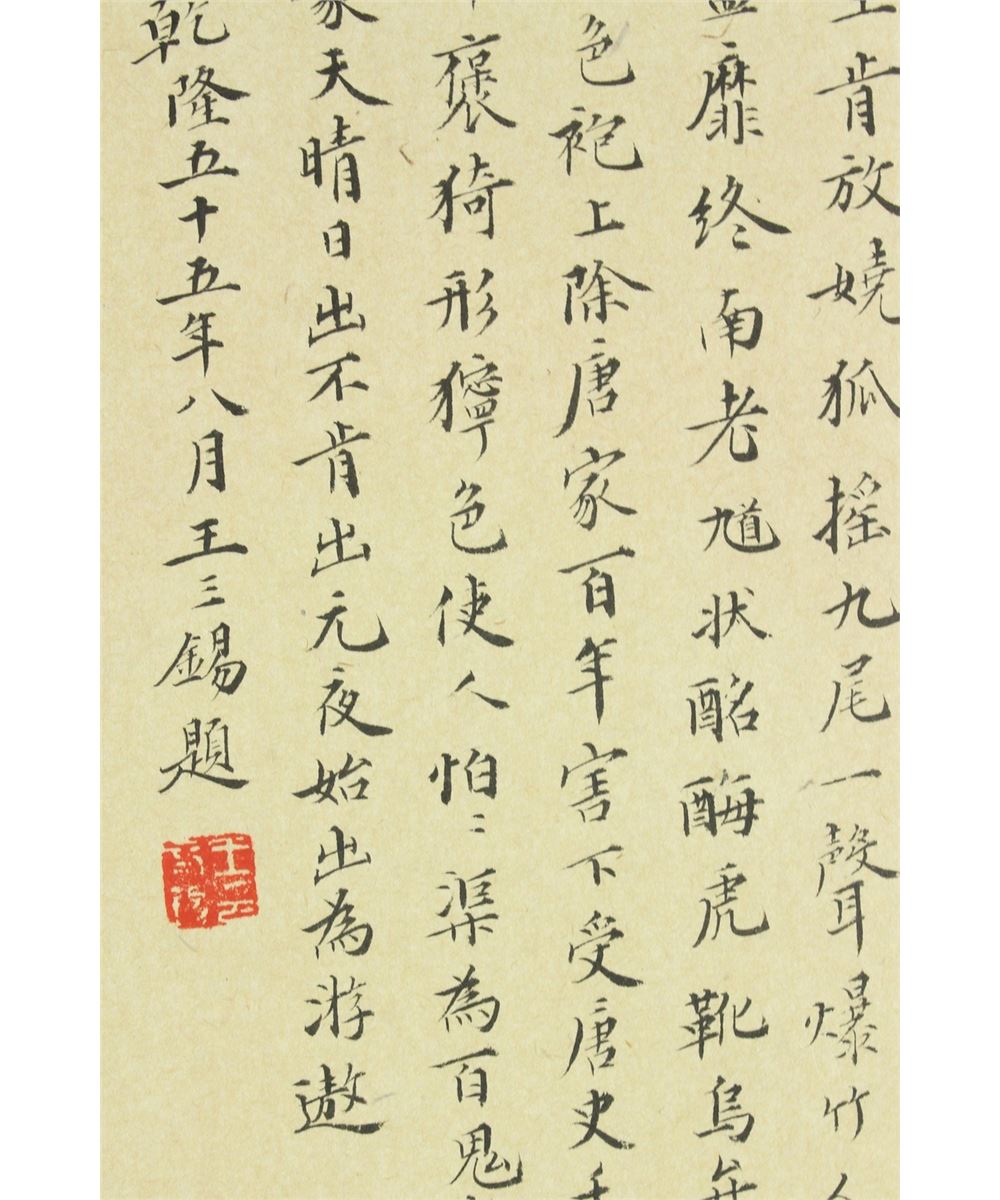 肯放嬈狐摇九尾一聲爆竹人
靡終南老馗状酩酶虎靴烏
色袍上除唐家百年害不受唐史
褒猗形獰色使人怕〻渠為百鬼
家天晴日出不肯出元夜始出為游遨
乾隆五十五年八月王三錫題
王三錫